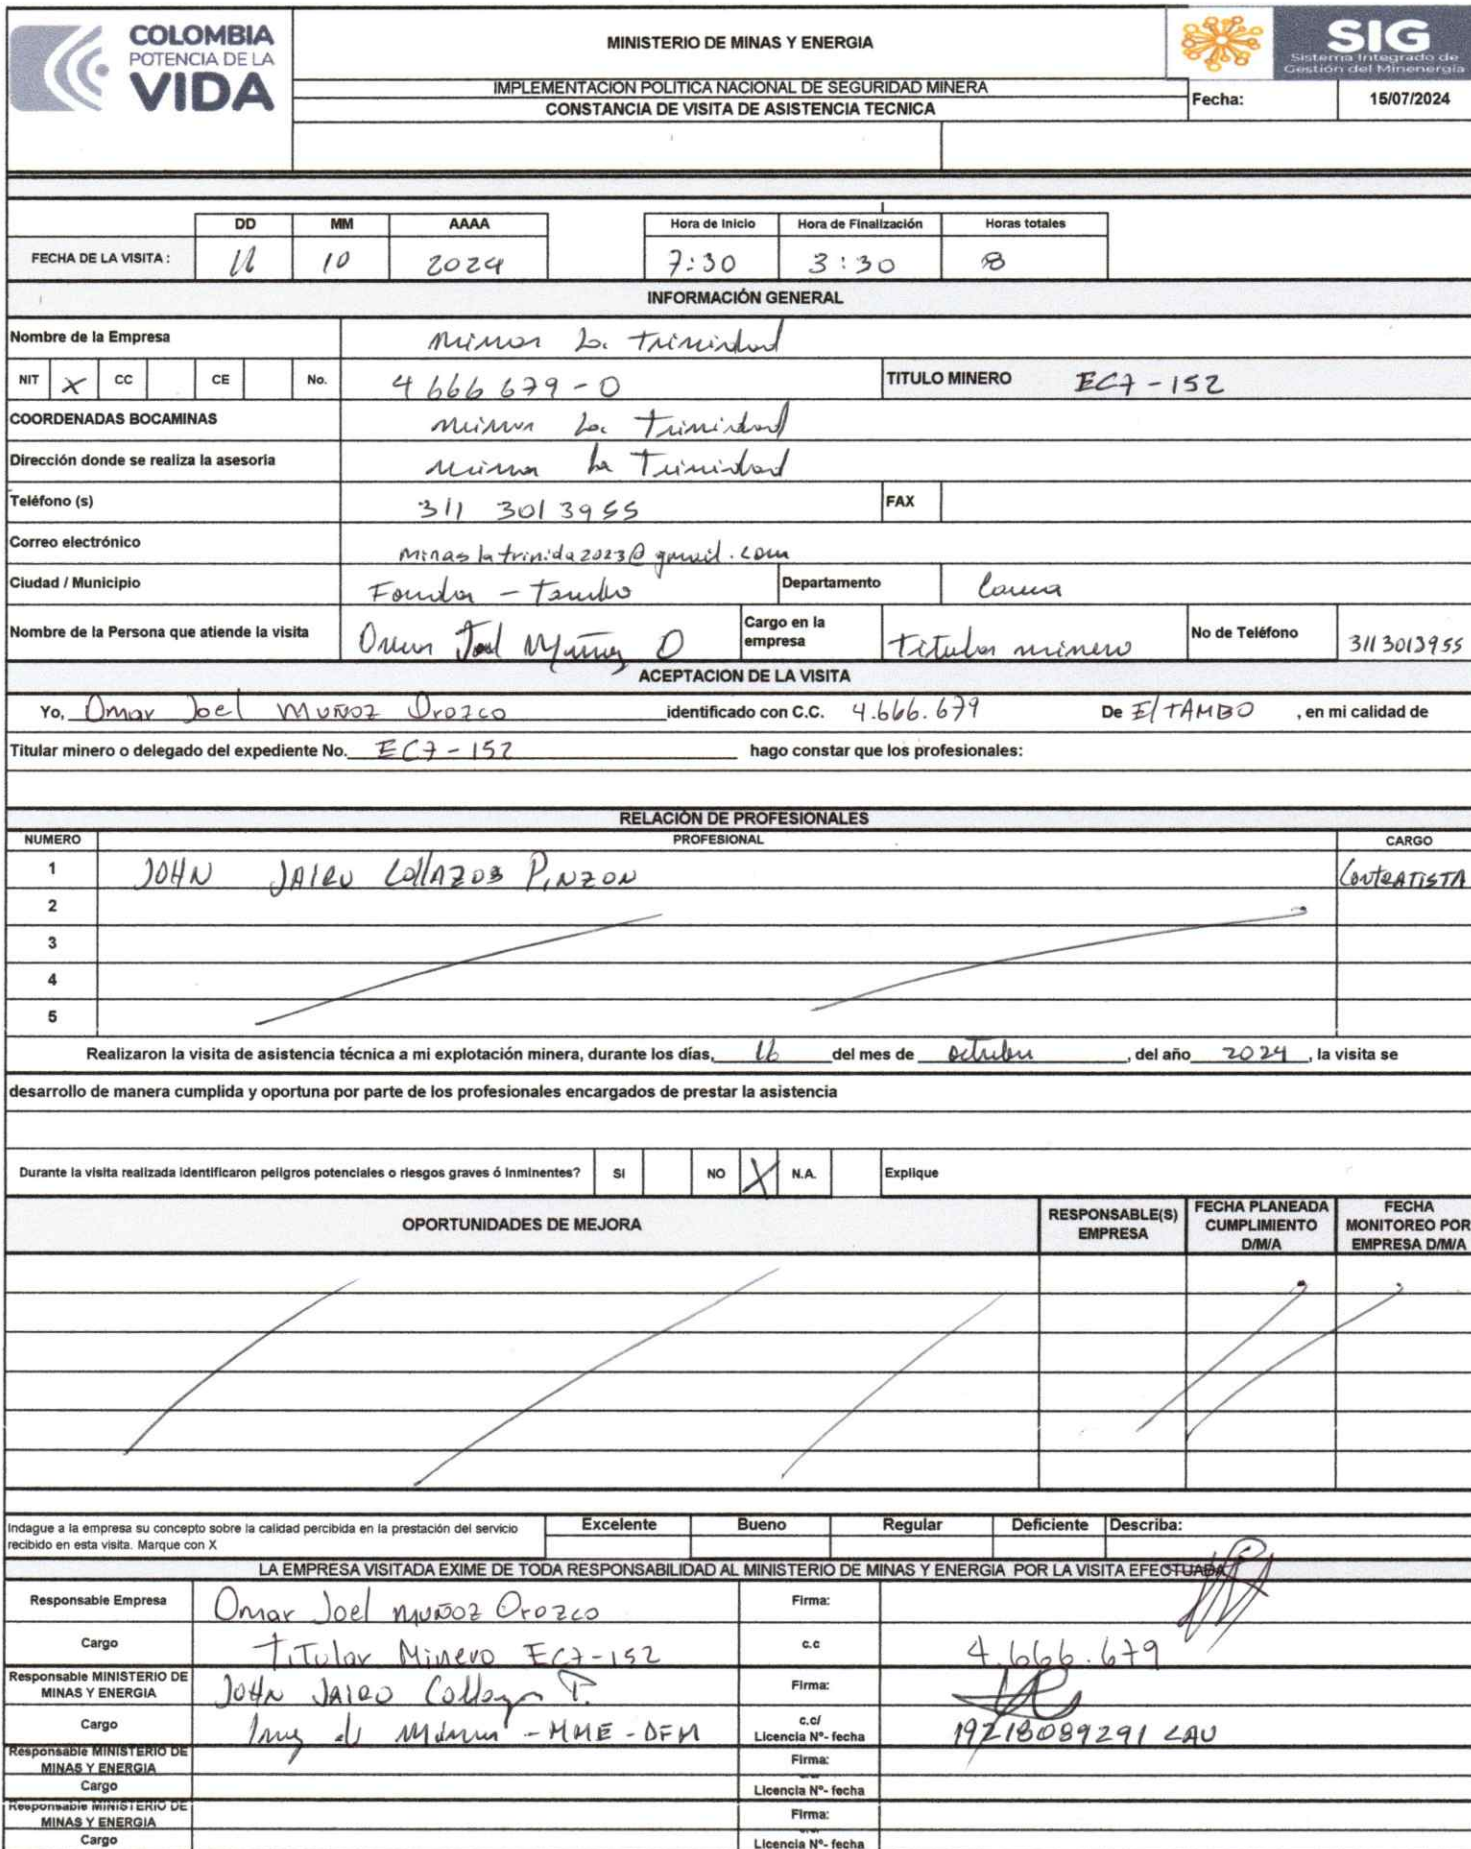 COLOMBIA
POTENCIA DE LA
VIDA
MINISTERIO DE MINAS Y ENERGIA
SIG
Sistema Integrado de
Gestión del Minenergía
IMPLEMENTACION POLITICA NACIONAL DE SEGURIDAD MINERA
CONSTANCIA DE VISITA DE ASISTENCIA TECNICA
Fecha: 15/07/2024
DD MM AAAA Hora de Inicio Hora de Finalización Horas totales
FECHA DE LA VISITA : 16 10 2024 7:30 3:30 8
INFORMACIÓN GENERAL
Nombre de la Empresa Minas La Trinidad
NIT X CC CE No. 4666679-0 TITULO MINERO EC7-152
COORDENADAS BOCAMINAS Mina La Trinidad
Dirección donde se realiza la asesoria Mina La Trinidad
Teléfono (s) 311 3013955 FAX
Correo electrónico minaslatrinida2023@gmail.com
Ciudad / Municipio Fondas - Tambo Departamento Cauca
Nombre de la Persona que atiende la visita Omar Joel Muñoz O Cargo en la empresa Titular minero No de Teléfono 3113013955
ACEPTACION DE LA VISITA
Yo, Omar Joel MUÑOZ Orozco identificado con C.C. 4.666.679 De El TAMBO , en mi calidad de
Titular minero o delegado del expediente No. EC7-152 hago constar que los profesionales:
RELACIÓN DE PROFESIONALES
NUMERO PROFESIONAL CARGO
1 JOHN JAIRO COllAZOS PINZON CONTRATISTA
2
3
4
5
Realizaron la visita de asistencia técnica a mi explotación minera, durante los días, 16 del mes de octubre , del año 2024 , la visita se
desarrollo de manera cumplida y oportuna por parte de los profesionales encargados de prestar la asistencia
Durante la visita realizada identificaron peligros potenciales o riesgos graves ó inminentes? SI NO X N.A. Explique
OPORTUNIDADES DE MEJORA RESPONSABLE(S) EMPRESA FECHA PLANEADA CUMPLIMIENTO D/M/A FECHA MONITOREO POR EMPRESA D/M/A
Indague a la empresa su concepto sobre la calidad percibida en la prestación del servicio
recibido en esta visita. Marque con X Excelente Bueno Regular Deficiente Describa:
LA EMPRESA VISITADA EXIME DE TODA RESPONSABILIDAD AL MINISTERIO DE MINAS Y ENERGIA POR LA VISITA EFECTUADA
Responsable Empresa Omar Joel MUÑOZ Orozco Firma:
Cargo Titular Minero EC7-152 c.c 4.666.679
Responsable MINISTERIO DE MINAS Y ENERGIA JOHN JAIRO Collazos P. Firma:
Cargo Ing de Minas - MME - DFM c.c/ Licencia Nº- fecha 19218089291 CAU
Responsable MINISTERIO DE MINAS Y ENERGIA Firma:
Cargo Licencia Nº- fecha
Responsable MINISTERIO DE MINAS Y ENERGIA Firma:
Cargo Licencia Nº- fecha